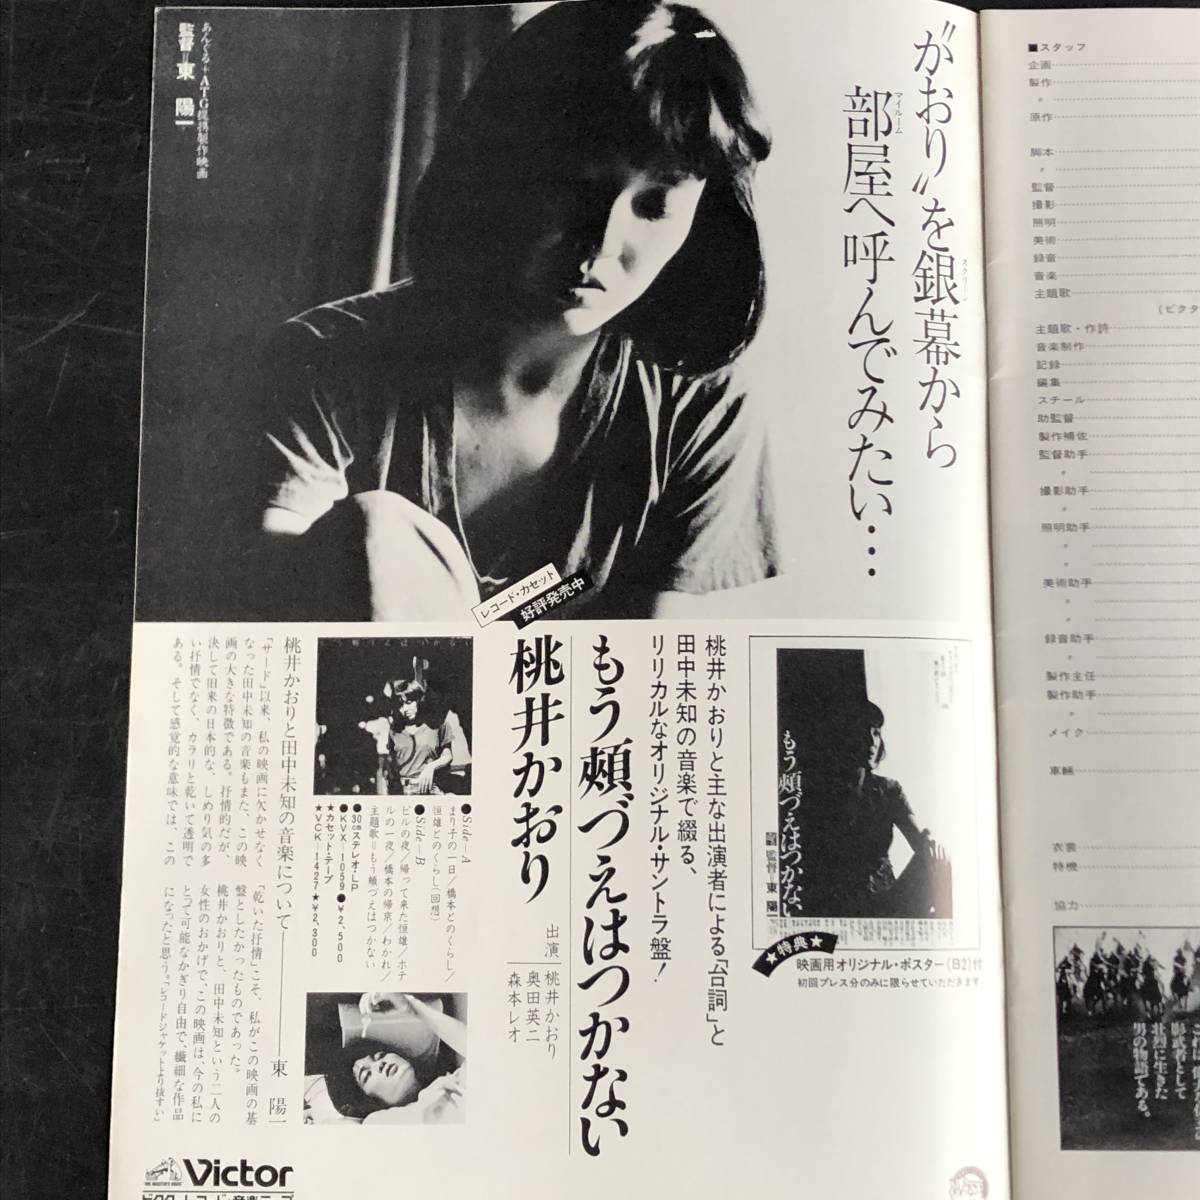 “かおり”を銀幕から
スクリーン
部屋へ呼んでみたい・・・
マイルーム
あんぐる+ATG提携製作映画
監督=東 陽一
レコード・カセット
好評発売中
もう頰づえはつかない
監督=東 陽一
★特典★
映画用オリジナル・ポスター(B2)付
初回プレス分のみに限らせていただきます。
桃井かおりと主な出演者による「台詞」と
田中未知の音楽で綴る、
リリカルなオリジナル・サントラ盤!
もう頰づえはつかない
桃井かおり
出演
桃井かおり
奥田英二
森本レオ
●Side—A
まり子の一日/橋本とのくらし/
恒雄とのくらし(回想)
●Side—B
ビルの夜/帰って来た恒雄/ホテ
ルの一夜/橋本の帰京/わかれ/
主題歌=もう頰づえはつかない
●30cmステレオ・LP
●KVX—1059●¥2,500
★カセット・テープ
★VCK—1427★¥2,300
桃井かおりと田中未知の音楽について——東 陽一
「サード」以来、私の映画に欠かせなく
なった田中未知の音楽もまた、この映
画の大きな特徴である。抒情的だが、
決して旧来の日本的な、しめり気の多
い抒情でなく、カラリと乾いて透明で
ある。そして感覚的な意味では、この
「乾いた抒情」こそ、私がこの映画の基
盤としたかったものであった。
桃井かおりと、田中未知という二人の
女性のおかげで、この映画は、今の私に
とって可能なかぎり自由で、繊細な作品
になったと思う。「レコードジャケットより抜すい」
"HIS MASTER'S VOICE"
Victor
ビクターレコード・音楽テープ
■スタッフ
企画
製作
〃
原作
脚本
〃
監督
撮影
照明
美術
録音
音楽
主題歌
(ビクタ
主題歌・作詩
音楽制作
記録
編集
スチール
助監督
製作補佐
監督助手
〃
撮影助手
〃
照明助手
〃
〃
美術助手
〃
〃
録音助手
〃
製作主任
製作助手
〃
メイク
車輛
衣裳
特機
協力
影武者として
壮烈に生きた
男の物語である。